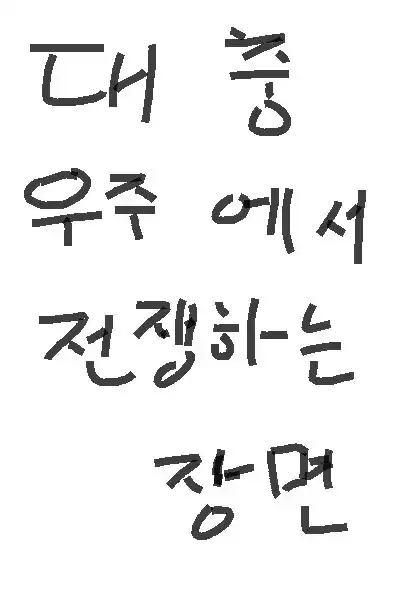 대 충
우주 에서
전쟁하는
장면